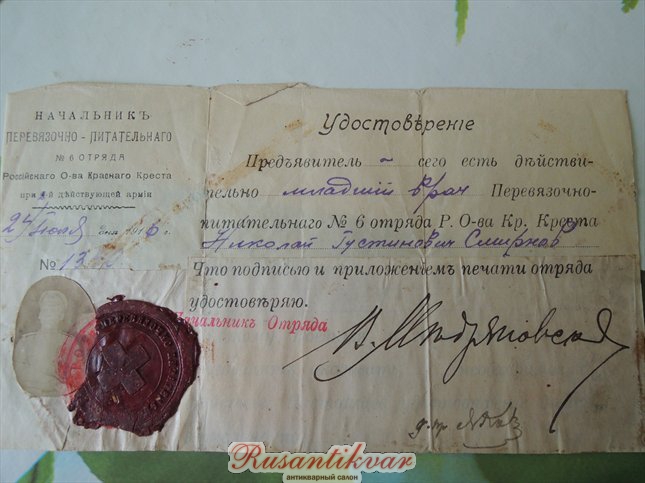 НАЧАЛЬНИКЪ
ПЕРЕВЯЗОЧНО-ПИТАТЕЛЬНАГО
№ 6 ОТРЯДА
Россійскаго О-ва Краснаго Креста
при й дѣйствующей арміи
1916 г.
№
Удостовѣреніе
Предъявитель - сего есть дѣйстви-
тельно младшій врач Перевязочно-
питательнаго № 6 отряда Р. О-ва Кр. Креста
Николай Густинович Смирнов
Что подписью и приложеніемъ печати отряда
удостовѣряю.
Начальникъ Отряда
Rusantikvar
антикварный салон